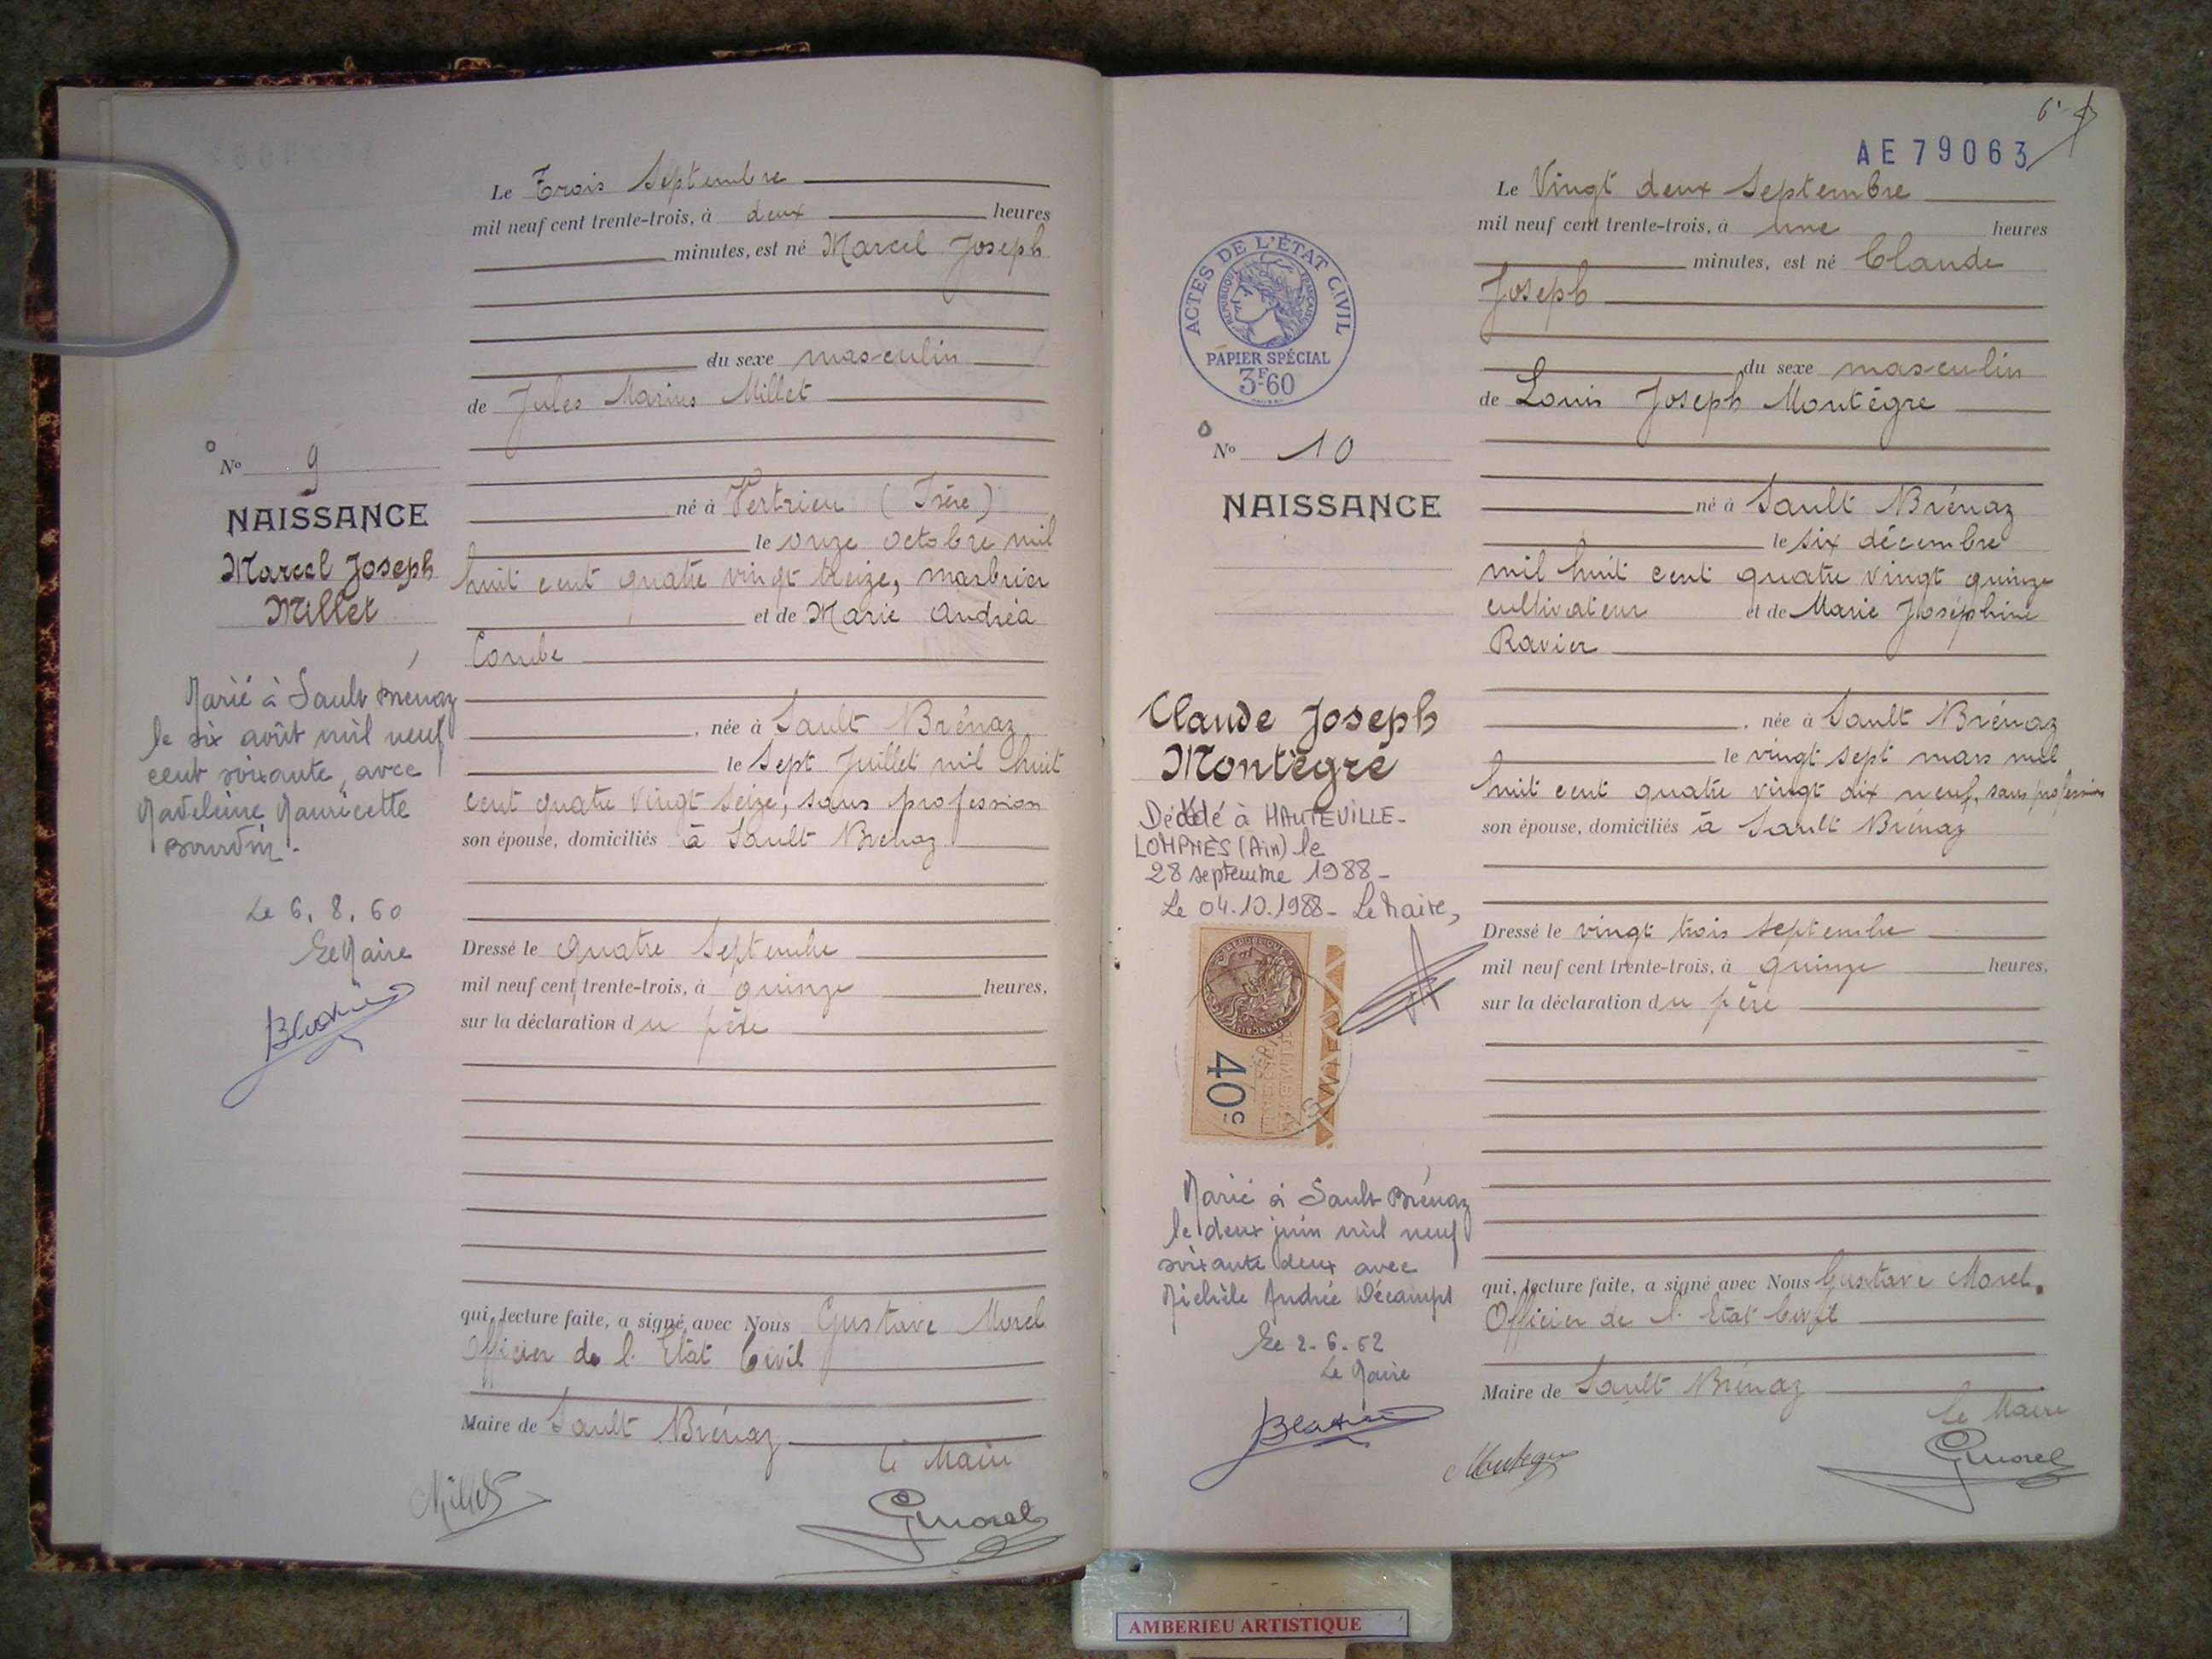 Le Trois Septembre
mil neuf cent trente-trois, à deux heures
minutes, est né Marcel Joseph
du sexe masculin
de Jules Marius Millet
né à Vertrieu (Isère)
le onze octobre mil
huit cent quatre vingt treize, marbrier
et de Marie Andréa
Combe
, née à Sault Brénaz
le Sept Juillet mil huit
cent quatre vingt seize, sans profession
son épouse, domiciliés à Sault Brénaz
Dressé le quatre Septembre
mil neuf cent trente-trois, à quinze heures,
sur la déclaration du père
qui, lecture faite, a signé avec Nous Gustave Morel
Officier de l'Etat Civil
Maire de Sault Brénaz
Le Maire
Millet
GMorel
No 9
NAISSANCE
Marcel Joseph
Millet
Marié à Sault Brénaz
le six août mil neuf
cent soixante, avec
Madeleine Mauricette
Bourdin.
Le 6. 8. 60
Le Maire
AE79063
Le Vingt deux Septembre
mil neuf cent trente-trois, à une heures
minutes, est né Claude
Joseph
du sexe masculin
de Louis Joseph Montégre
né à Sault Brénaz
le six décembre
mil huit cent quatre vingt quinze
cultivateur et de Marie Joséphine
Ravier
, née à Sault Brénaz
le vingt sept mars mil
huit cent quatre vingt dix neuf, sans profession
son épouse, domiciliés à Sault Brénaz
Dressé le vingt trois septembre
mil neuf cent trente-trois, à quinze heures,
sur la déclaration du père
qui, lecture faite, a signé avec Nous Gustave Morel.
Officier de l'Etat Civil
Maire de Sault Brénaz
Le Maire
Montegre
GMorel
ACTES DE L'ÉTAT CIVIL
RÉPUBLIQUE FRANÇAISE
PAPIER SPÉCIAL
3F60
No 10
NAISSANCE
Claude Joseph
Montègre
Décédé à HAUTEVILLE-
LOMPNÈS (Ain) le
28 septembre 1988-
Le 04.10.1988- Le Maire,
40c
Marié à Sault Brénaz
le deux juin mil neuf
soixante deux avec
Michèle Andrée Décamps
Le 2-6.62
Le Maire
AMBERIEU ARTISTIQUE